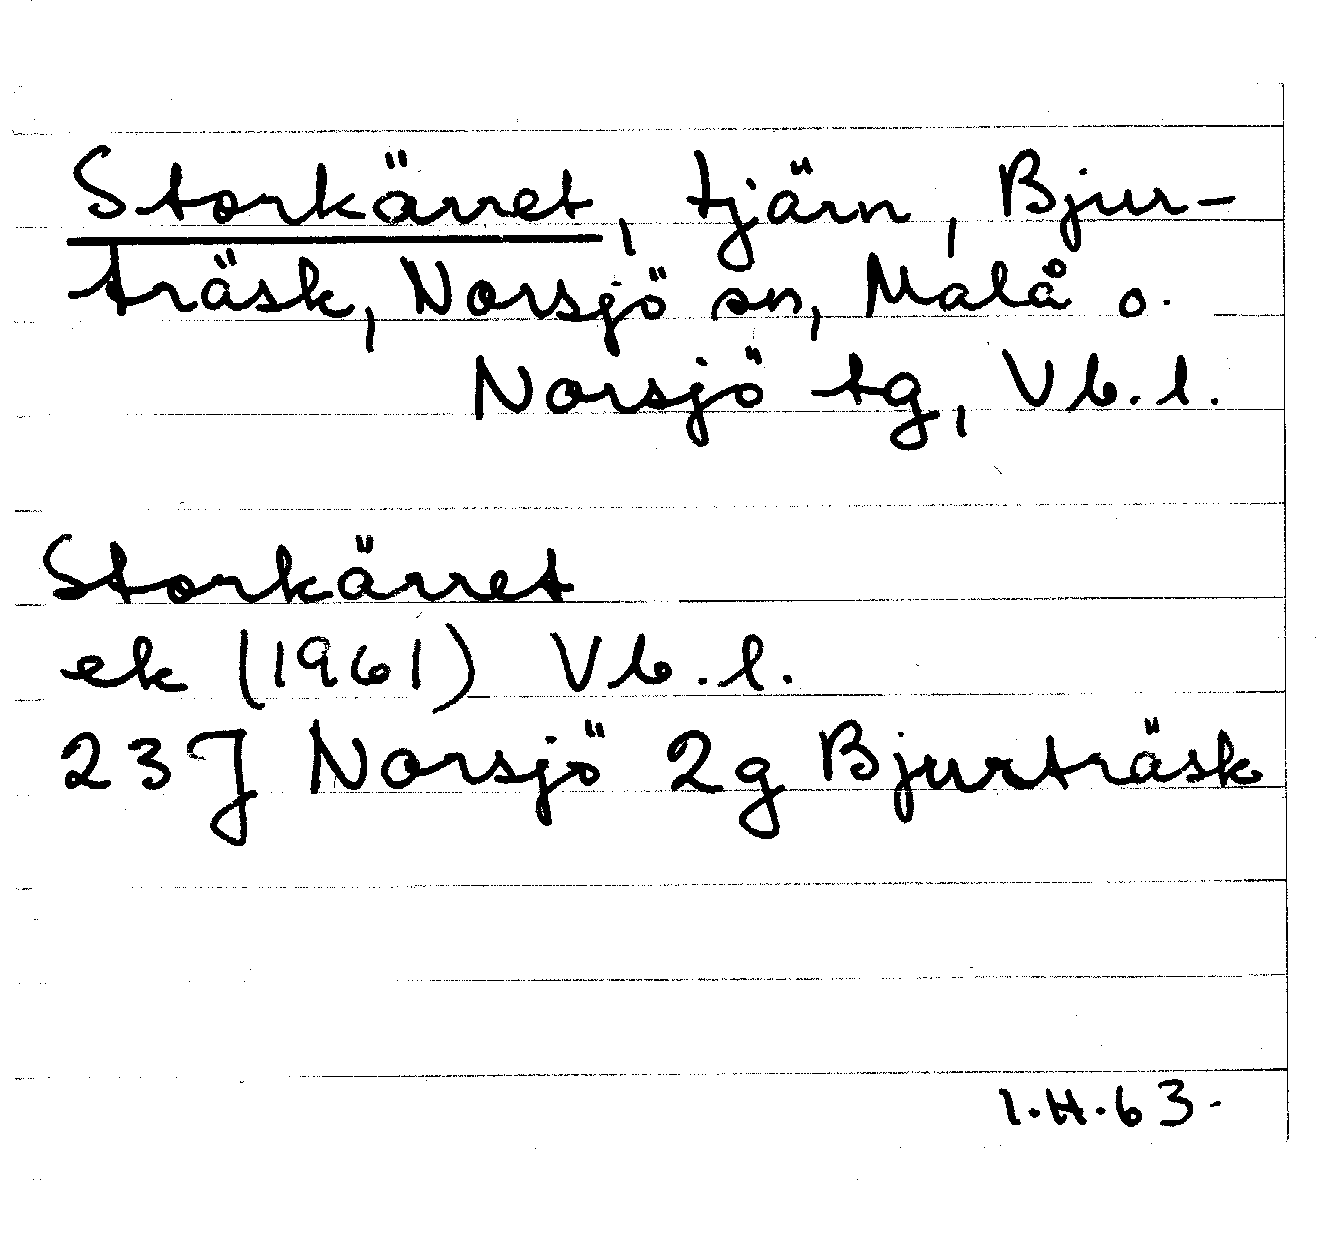 Storkärret, tjärn, Bjur-
träsk, Norsjö sn, Malå o.
Norsjö tg, Vb.l.
Storkärret
ek (1961) Vb.l.
23J Norsjö 2g Bjurträsk
I.H.63.